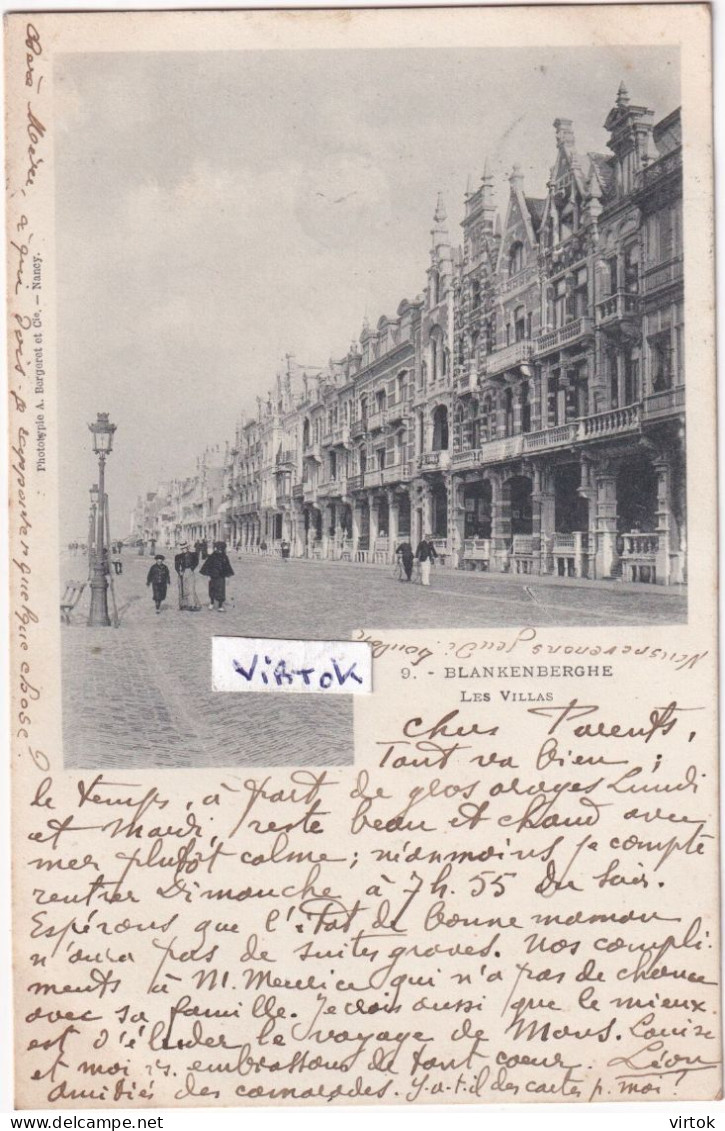 Chère Mère, à qui dois-je rapporter quelque chose ?
Phototypie A. Bergeret et Cie. — Nancy.
VIRTOK
Nous revenons jeudi.
9. - BLANKENBERGHE
LES VILLAS
Chers Parents,
Tout va bien ;
le temps, à part de gros orages Lundi
et Mardi, reste beau et chaud avec
mer plutôt calme ; néanmoins je compte
rentrer Dimanche à 7h.55 du soir.
Espérons que l'état de bonne maman
n'aura pas de suites graves. Nos compli-
ments à M. Meurice qui n'a pas de chance
avec sa famille. Je crois aussi que le mieux
est d'éluder le voyage de Mons. Louise
et moi vs. embrassons de tout coeur. Léon
Amitiés des camarades. Y-a-t-il des cartes p. moi ?
virtok
delcampe.net